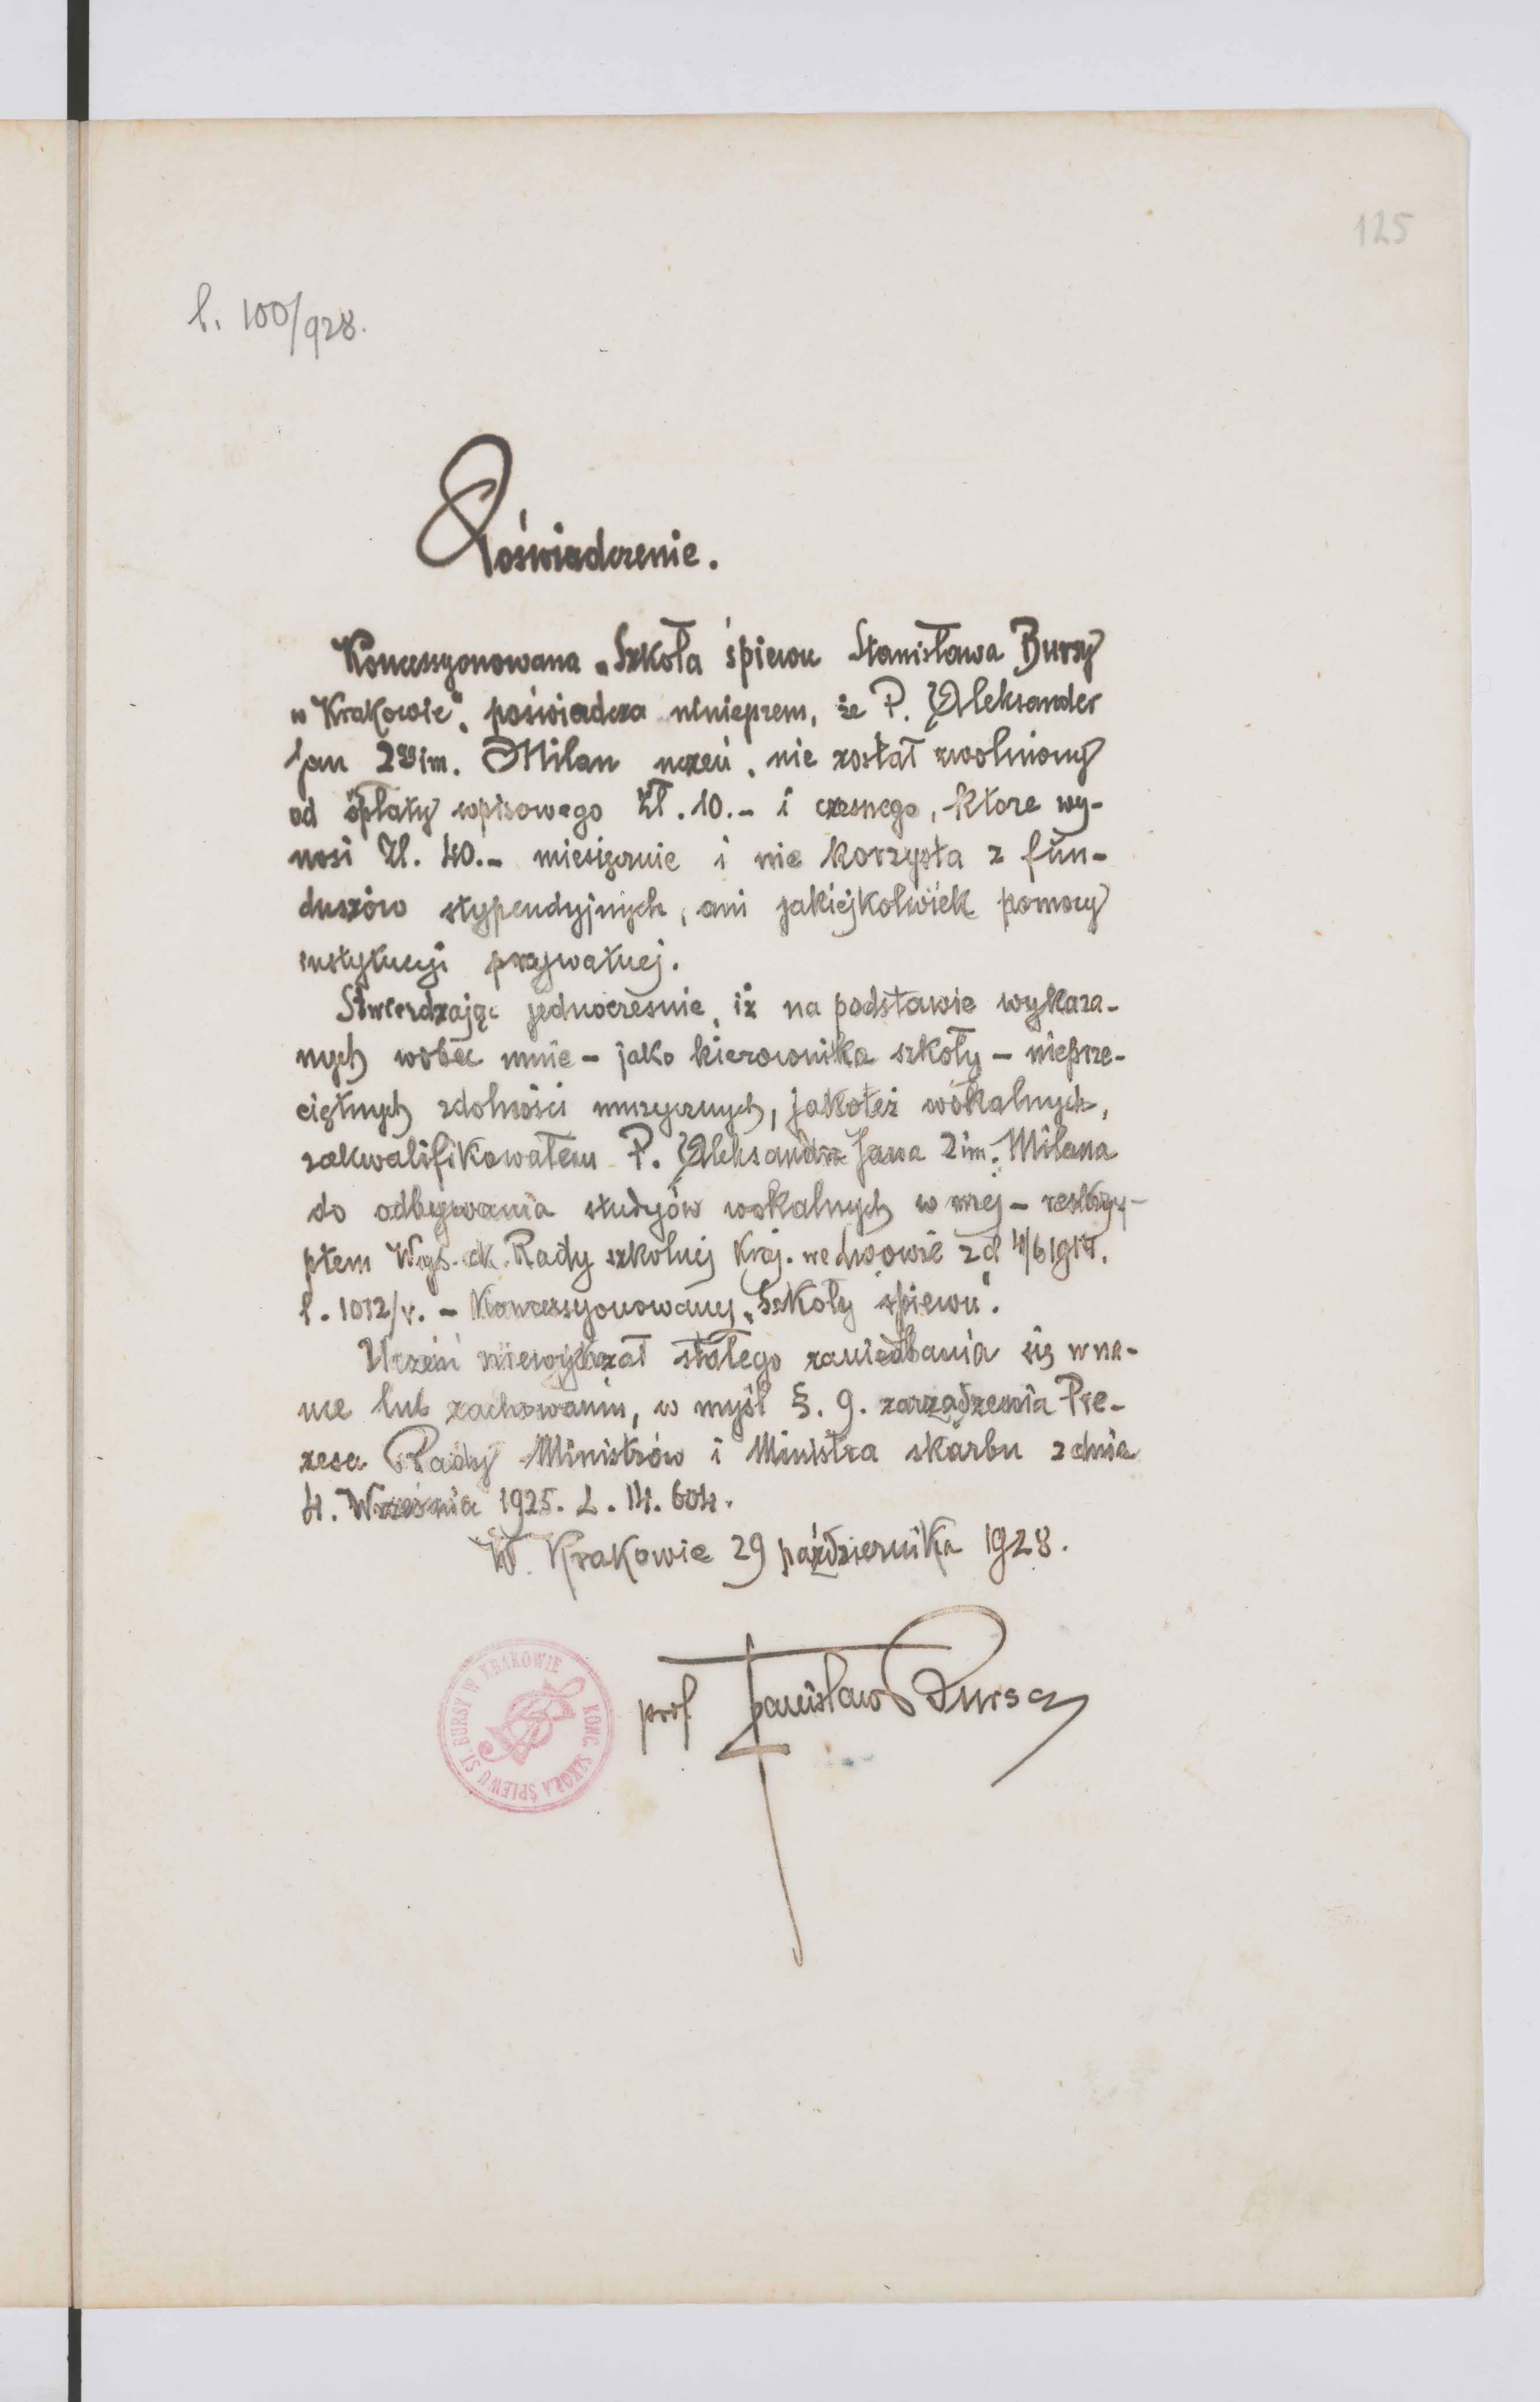 125
l. 100/928.
Poświadczenie.
Koncesyonowana „Szkoła śpiewu Stanisława Bursy
w Krakowie", poświadcza niniejszem, że P. Aleksander
Jan 2ga im. Milan uczeń, nie został zwolniony
od opłaty wpisowego Zł. 10.- i czesnego, które wy-
nosi Zł. 40.- miesięcznie i nie korzysta z fun-
duszów stypendyjnych, ani jakiejkolwiek pomocy
instytucyi prywatnej.
Stwierdzając jednocześnie, iż na podstawie wykaza-
nych wobec mnie - jako kierownika szkoły - nieprze-
ciętnych zdolności muzycznych, jakoteż wokalnych,
zakwalifikowałem P. Aleksandra Jana 2 im. Milana
do odbywania studyów wokalnych w mej - reskry-
ptem Wys. ck. Rady szkolnej Kraj. we Lwowie z d 4/6
l. 1012/v. - Koncesyonowanej „Szkoły śpiewu".
Uczeń niewykazał stałego zaniedbania się w na-
uce lub zachowaniu, w myśl §. 9. zarządzenia Pre-
zesa Rady Ministrów i Ministra skarbu z dnia
4. Września 1925. L. 14. 604.
W Krakowie 29 października 1928.
prof. Stanisław Bursa
KONC. SZKOŁA ŚPIEWU ST. BURSY W KRAKOWIE